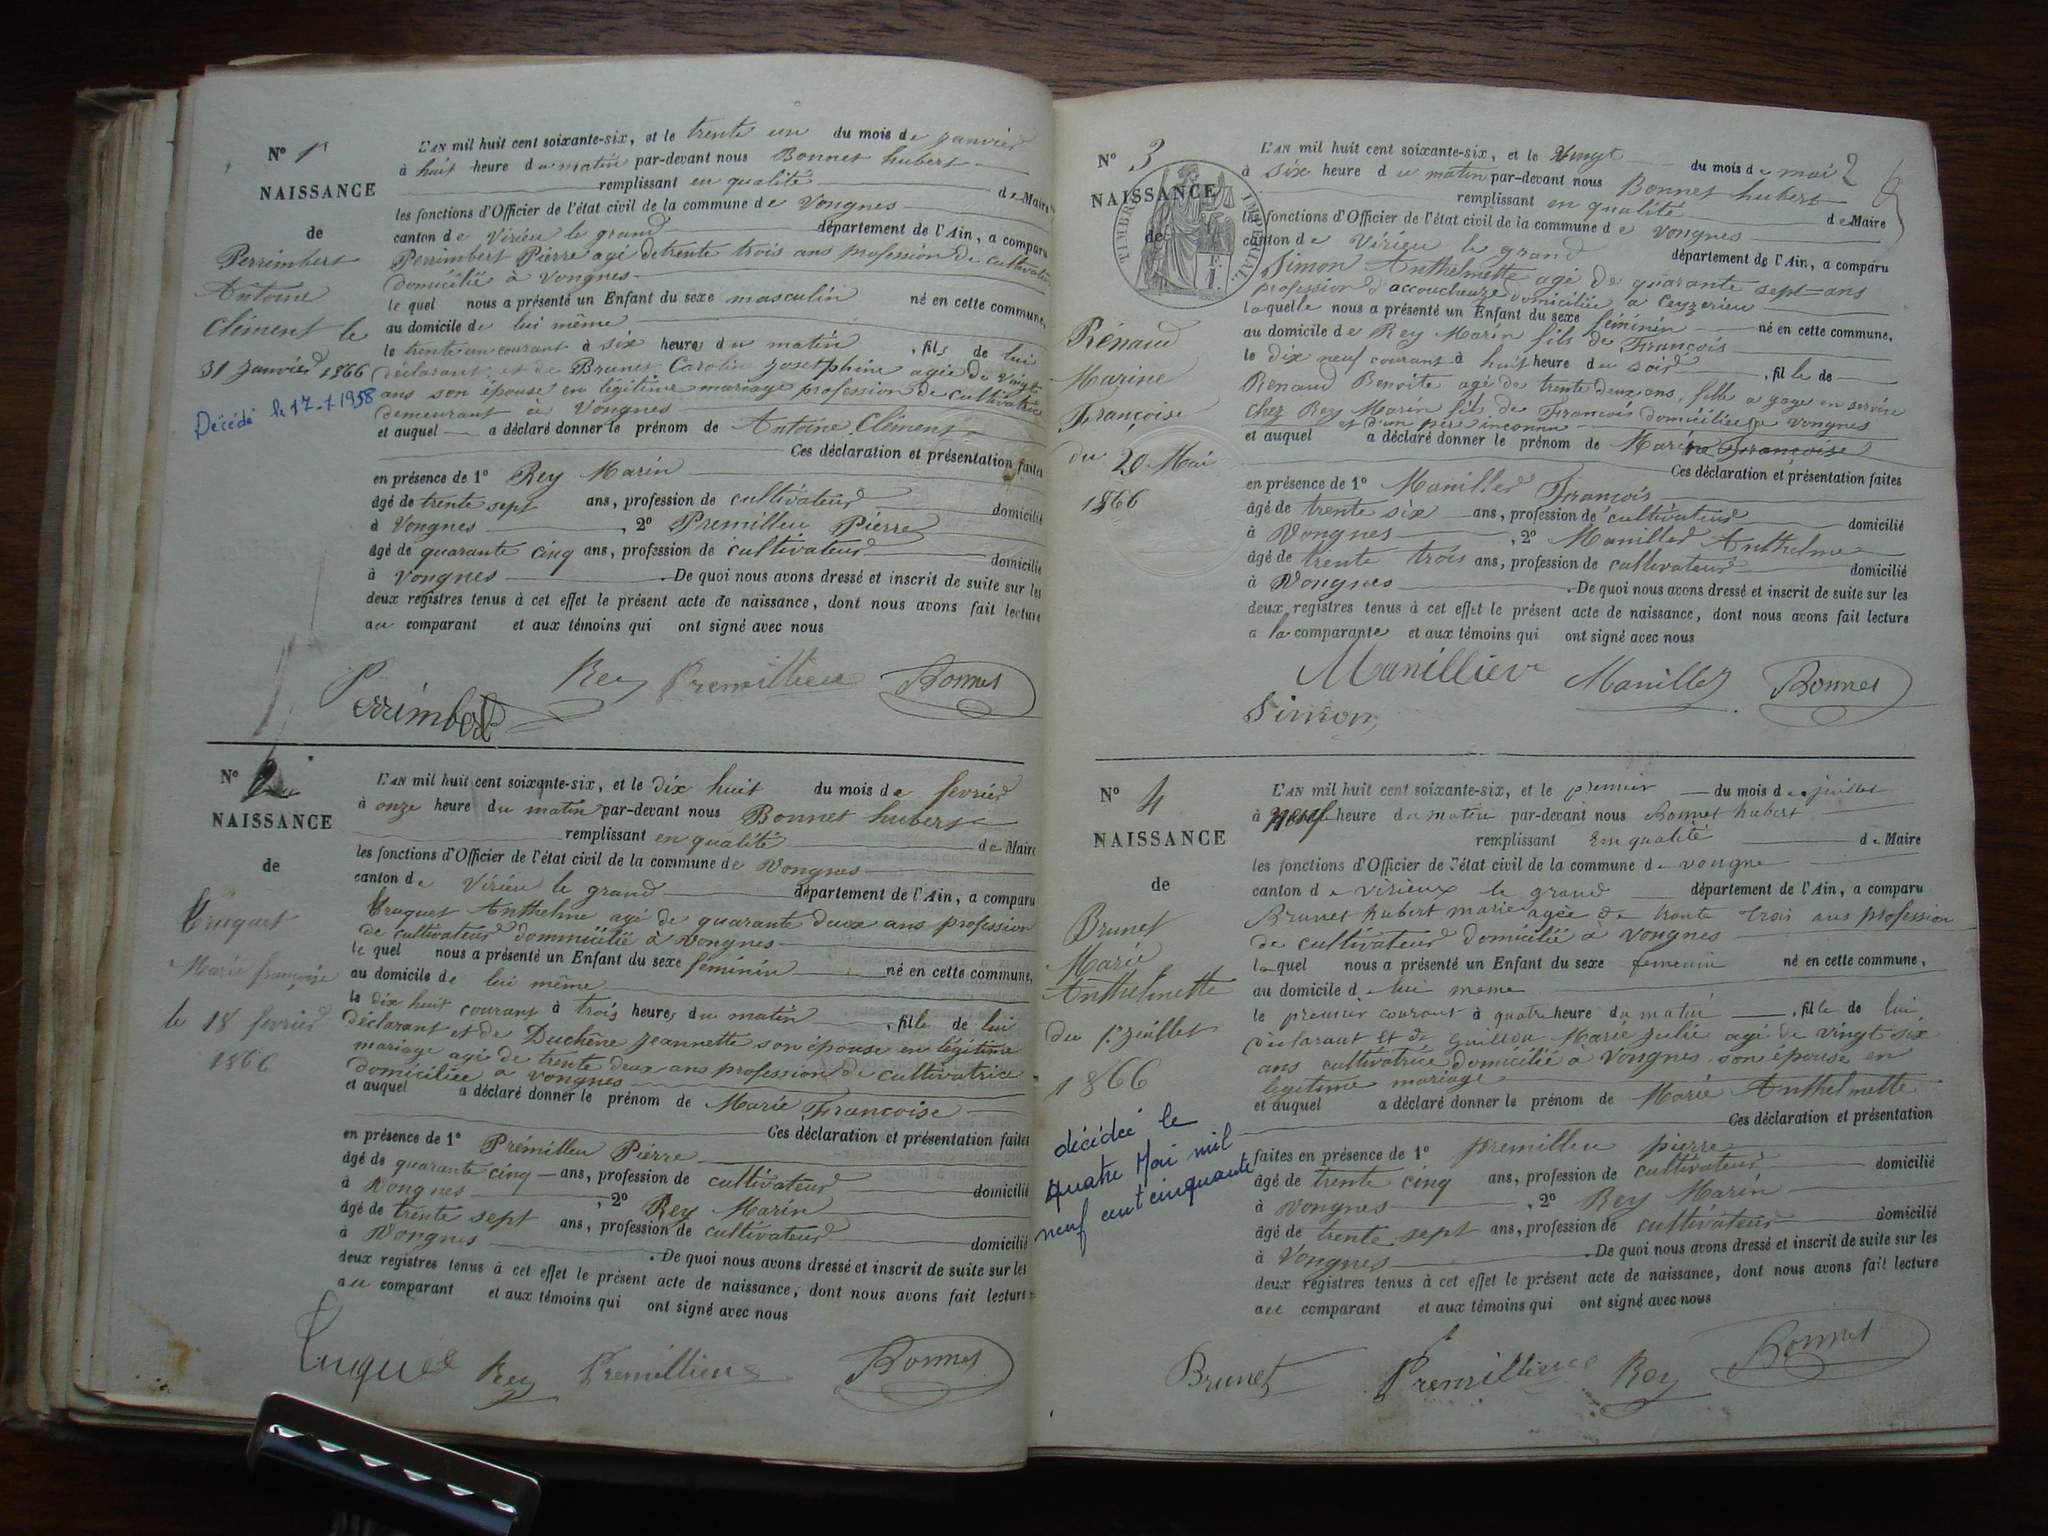 N° 1r
NAISSANCE
de
Perrimbert
Antoine
Clément le
31 Janvier 1866
Décédé le 17-1-1958
L'AN mil huit cent soixante-six, et le trente un du mois de janvier
à huit heure du matin par-devant nous Bonnet hubert
remplissant en qualité de Maire
les fonctions d'Officier de l'état civil de la commune de Vongnes
canton de Virieu le grand département de l'Ain, a comparu
Perrimbert Pierre agé de trente trois ans profession de cultivateur
domicilié à Vongnes
le quel nous a présenté un Enfant du sexe masculin né en cette commune,
au domicile de lui même
le trente un courant à six heures du matin, fils de lui
déclarant, et de Brunet Caroline Josephine agée de vingt
ans son épouse en légitime mariage profession de cultivatrice
demeurant à Vongnes
et auquel a déclaré donner le prénom de Antoine Clément
Ces déclaration et présentation faites
en présence de 1° Rey Marin
âgé de trente sept ans, profession de cultivateur domicilié
à Vongnes, 2° Premilleu Pierre
âgé de quarante cinq ans, profession de cultivateur domicilié
à Vongnes. De quoi nous avons dressé et inscrit de suite sur les
deux registres tenus à cet effet le présent acte de naissance, dont nous avons fait lecture
au comparant et aux témoins qui ont signé avec nous
Rey Premillieu Bonnet
Perrimbert
N° 2
NAISSANCE
de
Truquet
Marie françoise
le 18 fevrier
1866
L'AN mil huit cent soixante-six, et le dix huit du mois de fevrier
à onze heure du matin par-devant nous Bonnet hubert
remplissant en qualité de Maire
les fonctions d'Officier de l'état civil de la commune de Vongnes
canton de Virieu le grand département de l'Ain, a comparu
Truquet Anthelme agé de quarante deux ans profession
de cultivateur dommicilié à Vongnes
le quel nous a présenté un Enfant du sexe féminin né en cette commune,
au domicile de lui même
le dix huit courant à trois heures du matin, fille de lui
déclarant et de Duchêne Jeannette son épouse en légitime
mariage agé de trente deux ans profession de cultivatrice
domiciliée à Vongnes
et auquel a déclaré donner le prénom de Marie Francoise
Ces déclaration et présentation faites
en présence de 1° Prémilleu Pierre
âgé de quarante cinq ans, profession de cultivateur domicilié
à Vongnes, 2° Rey Marin
âgé de trente sept ans, profession de cultivateur domicilié
à Vongnes. De quoi nous avons dressé et inscrit de suite sur les
deux registres tenus à cet effet le présent acte de naissance, dont nous avons fait lecture
au comparant et aux témoins qui ont signé avec nous
Truquet Rey Premillieu Bonnet
N° 3
NAISSANCE
de
TIMBRE IMPERIAL
Rénaud
Marine
Françoise
du 20 Mai
1866
L'AN mil huit cent soixante-six, et le Vingt du mois de mai 2
à six heure du matin par-devant nous Bonnet hubert
remplissant en qualité de Maire
les fonctions d'Officier de l'état civil de la commune de Vongnes
canton de Virieu le grand département de l'Ain, a comparu
Simon Anthelmette agé de quarante sept ans
profession d'accoucheuze domiciliée à Ceyzerieu
laquelle nous a présenté un Enfant du sexe féminin né en cette commune,
au domicile de Rey Marin fils de François
le dix neuf courant à huit heure du soir, fille de
Renaud Benoite agé de trente deux ans, fille a gage en service
chez Rey Marin fils de François domiciliée à Vongnes
et d'un père inconnu
et auquel a déclaré donner le prénom de Marine Francoise
Ces déclaration et présentation faites
en présence de 1° Manillier François
âgé de trente six ans, profession de cultivateur domicilié
à Vongnes, 2° Manillier Anthelme
âgé de trente trois ans, profession de cultivateur domicilié
à Vongnes. De quoi nous avons dressé et inscrit de suite sur les
deux registres tenus à cet effet le présent acte de naissance, dont nous avons fait lecture
a la comparante et aux témoins qui ont signé avec nous
Manillier Manillier Bonnet
Simon
N° 4
NAISSANCE
de
Brunet
Marie
Anthelmette
du 1er Juillet
1866
décédée le
quatre Mai mil
neuf cent cinquante
L'AN mil huit cent soixante-six, et le premier du mois de juillet
à neuf heure du matin par-devant nous Bonnet hubert
remplissant En qualité de Maire
les fonctions d'Officier de l'état civil de la commune de vongne
canton de virieux le grand département de l'Ain, a comparu
Brunet hubert marie agée de trente trois ans profession
de cultivateur domicilié à Vongnes
laquel nous a présenté un Enfant du sexe né en cette commune,
au domicile de lui meme
le premier courant à quatre heure du matin, fille de lui
déclarant et de Marie Julie agé de vingt six
ans cultivatrice domicilié à Vongnes son épouse en
legitime mariage
et auquel a déclaré donner le prénom de Marie Anthelmette
Ces déclaration et présentation
faites en présence de 1° premilleu pierre
âgé de trente cinq ans, profession de cultivateur domicilié
à Vongnes, 2° Rey Marin
âgé de trente sept ans, profession de cultivateur domicilié
à Vongnes. De quoi nous avons dressé et inscrit de suite sur les
deux registres tenus à cet effet le présent acte de naissance, dont nous avons fait lecture
au comparant et aux témoins qui ont signé avec nous
Brunet Premillieu Rey Bonnet